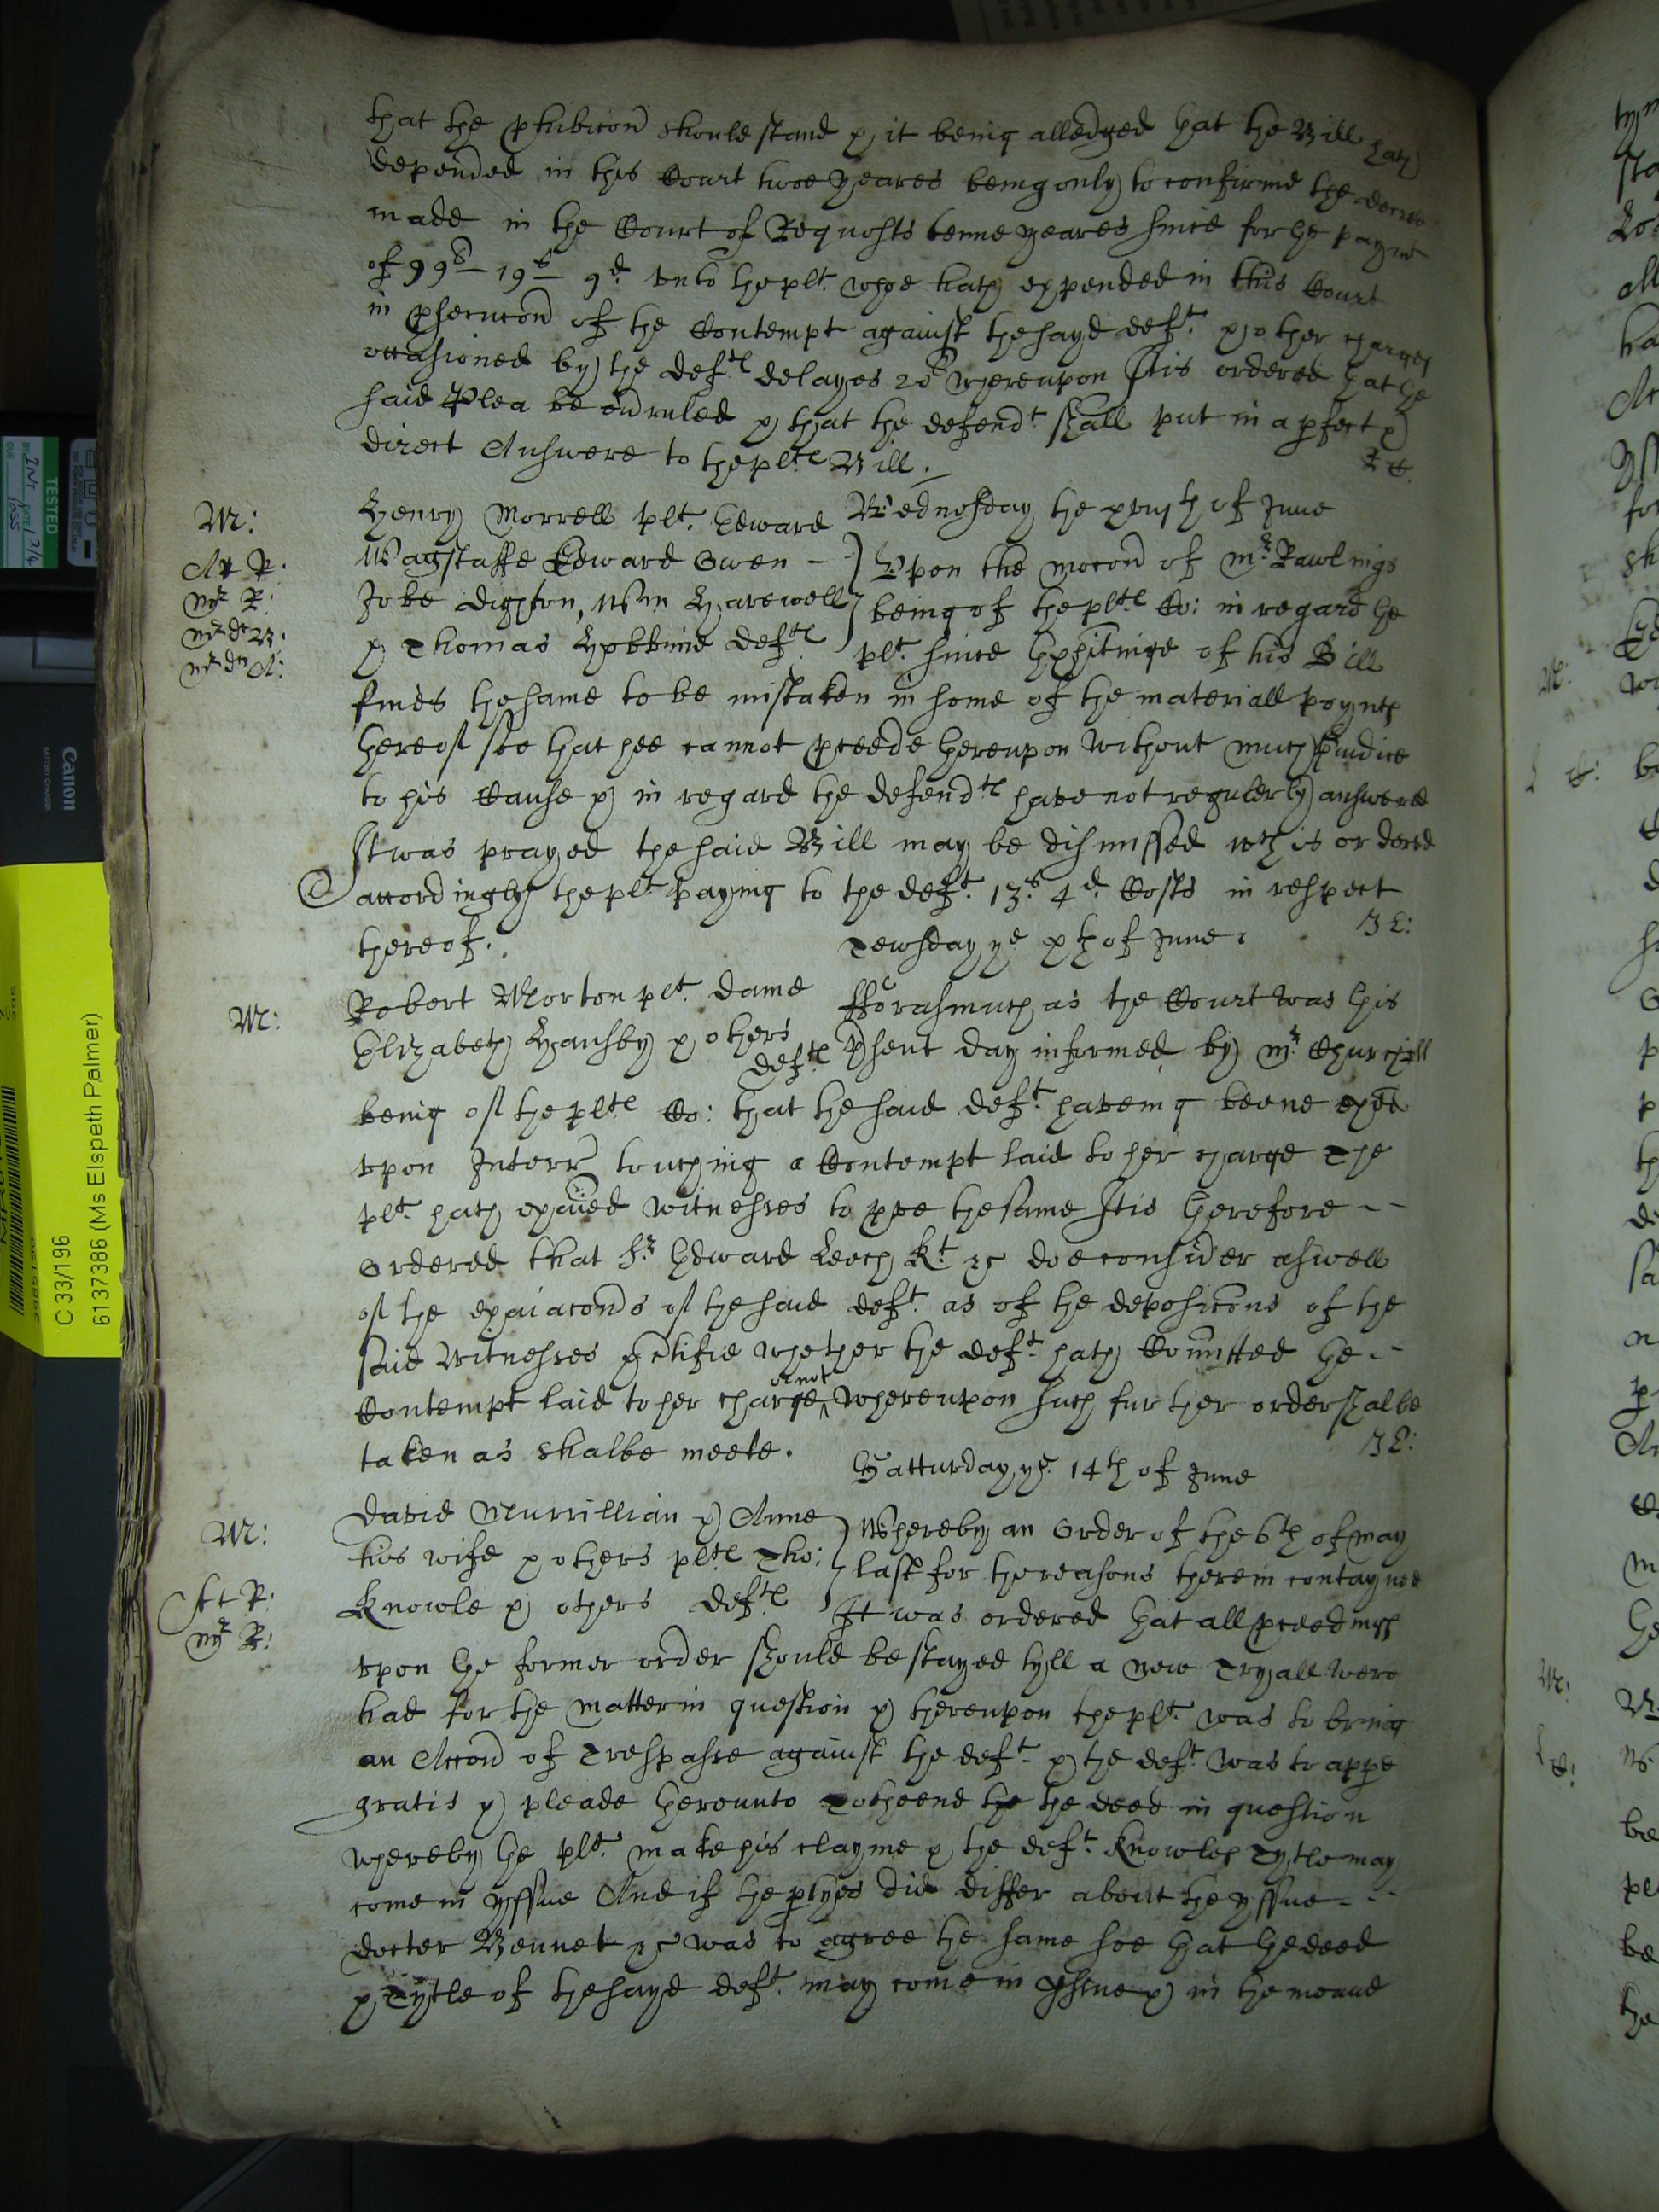 that the should stand & it being alledged that the Bill hath
depended in this Court twoe yeares being only to confirme the decree
made in the Court of Requests tenne yeares since for the paymt
of 99l 19s 9d unto the plt. whoe hath expended in this Court
in psecucon of the Contempt against the sayd deft. & other charges
occasioned by the defts delayes 20l whereupon It is ordered that the
said Plea be ovruled & that the defendt shall put in a pfect &
direct Answere to the plts Bill.
M: Henry Morrell plt. Edward
Wagstaffe Edward Owen
Jobe Digton, Wm Harewell
& Thomas defts.
At R:
Mr R:
Wednesday the xviijth of June
Upon the mocon of Mr. Rawlings
being of the plts Co: in regard the
plt. since thexhibitinge of his Bill
findes the same to be mistaken in some of the materiall poynts
thereof soe that hee cannot pceede thereupon without much pjudice
to his Cause & in regard the defendts have not regulerly answered
It was prayed the said Bill may be dismissed wch is ordered
accordingly the plt. paying to the deft. 13s. 4d. Costs in respect
thereof.
Tewsday ye xth of June
M: Robert Morton plt. Dame
Elizabeth Hansby & others
defts
Fforasmuch as the Court was this
psent day informed by Mr. Churchill
being of the plts Co: that the said deft. haveing beene exed
upon Interr touching a Contempt laid to her charge The
plt. hath exaied witnesses to pve the same It is therefore --
Ordered that Sr. Edward Leech Kt. &c doe consider aswell
of the exaiacons of the said deft. as of the deposicons of the
said Witnesses & ctifie whether the deft. hath Comitted the --
Contempt laid to her charge or not whereupon such further order shalbe
taken as shalbe meete.
Satturday ye. 14th of June
M: David Murrillian & Anne
his wife & others plts Tho:
Knowle & others defts
Mr R:
Whereby an Order of the 6th of May
last for the reasons therein contayned
It was ordered that all pceedings
upon the former order should be stayed tyll a new Tryall were
had for the matter in question & thereupon the plt. was to bring
an Accon of Trespasse against the deft. & the deft. was to appe
gratis & pleade thereunto To the end the deed in question
whereby the plt. make his clayme & the deft. Knowles Tytle may
come in yssue And if the ptyes did differ about the yssue --
Docter Bennet &c was to agree the same soe that the deed
& Tytle of the sayd deft. may come in yssue & in the meane
TESTED
Canon
BATTERY CHARGER
C 33/196
6137386 (Ms Elspeth Palmer)